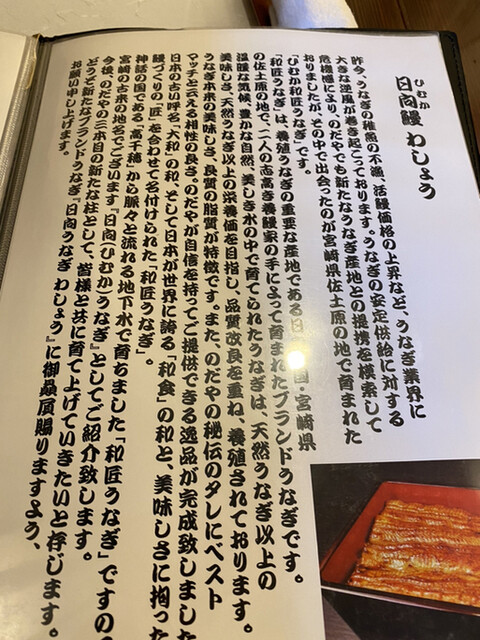 ひむか
日向鰻 わしょう
昨今、うなぎの稚魚の不漁、活鰻価格の上昇など、うなぎ業界に
大きな逆風が巻き起こっております。うなぎの安定供給に対する
危機感により、のだやでも新たなうなぎ産地との提携を模索して
おりましたが、その中で出会ったのが宮崎県佐土原の地で育まれた
「ひむか和匠うなぎ」です。
「和匠うなぎ」は、養殖うなぎの重要な産地である日 国・宮崎県
の佐土原の地で、二人の志高き養鰻家の手によって育まれたブランドうなぎです。
温暖な気候、豊かな自然、美しき水の中で育てられたうなぎは、天然うなぎ以上の
美味しさ、天然うなぎ以上の栄養価を目指し、品質改良を重ね、養殖されております。
うなぎ本来の美味しさ、良質の脂質が特徴です。また、のだやの秘伝のタレにベスト
マッチと言える相性の良さ。のだやが自信を持ってご提供できる逸品が完成致しました
日本の古い呼名「大和」の和、そして日本が世界に誇る「和食」の和と、美味しさに拘った
鰻づくりの「匠」を合わせて名付けられた「和匠うなぎ」。
神話の国である「高千穂」から脈々と流れる地下水で育ちました「和匠うなぎ」ですので
宮崎の古来の地名でございます『日向(ひむか)うなぎ』としてご紹介致します。
今後、のだやの二本目の新たな柱として、皆様と共に育て上げていきたいと存じます。
どうぞ新たなブランドうなぎ『日向うなぎ わしょう』に御贔屓賜りますよう、
お願い申し上げます。